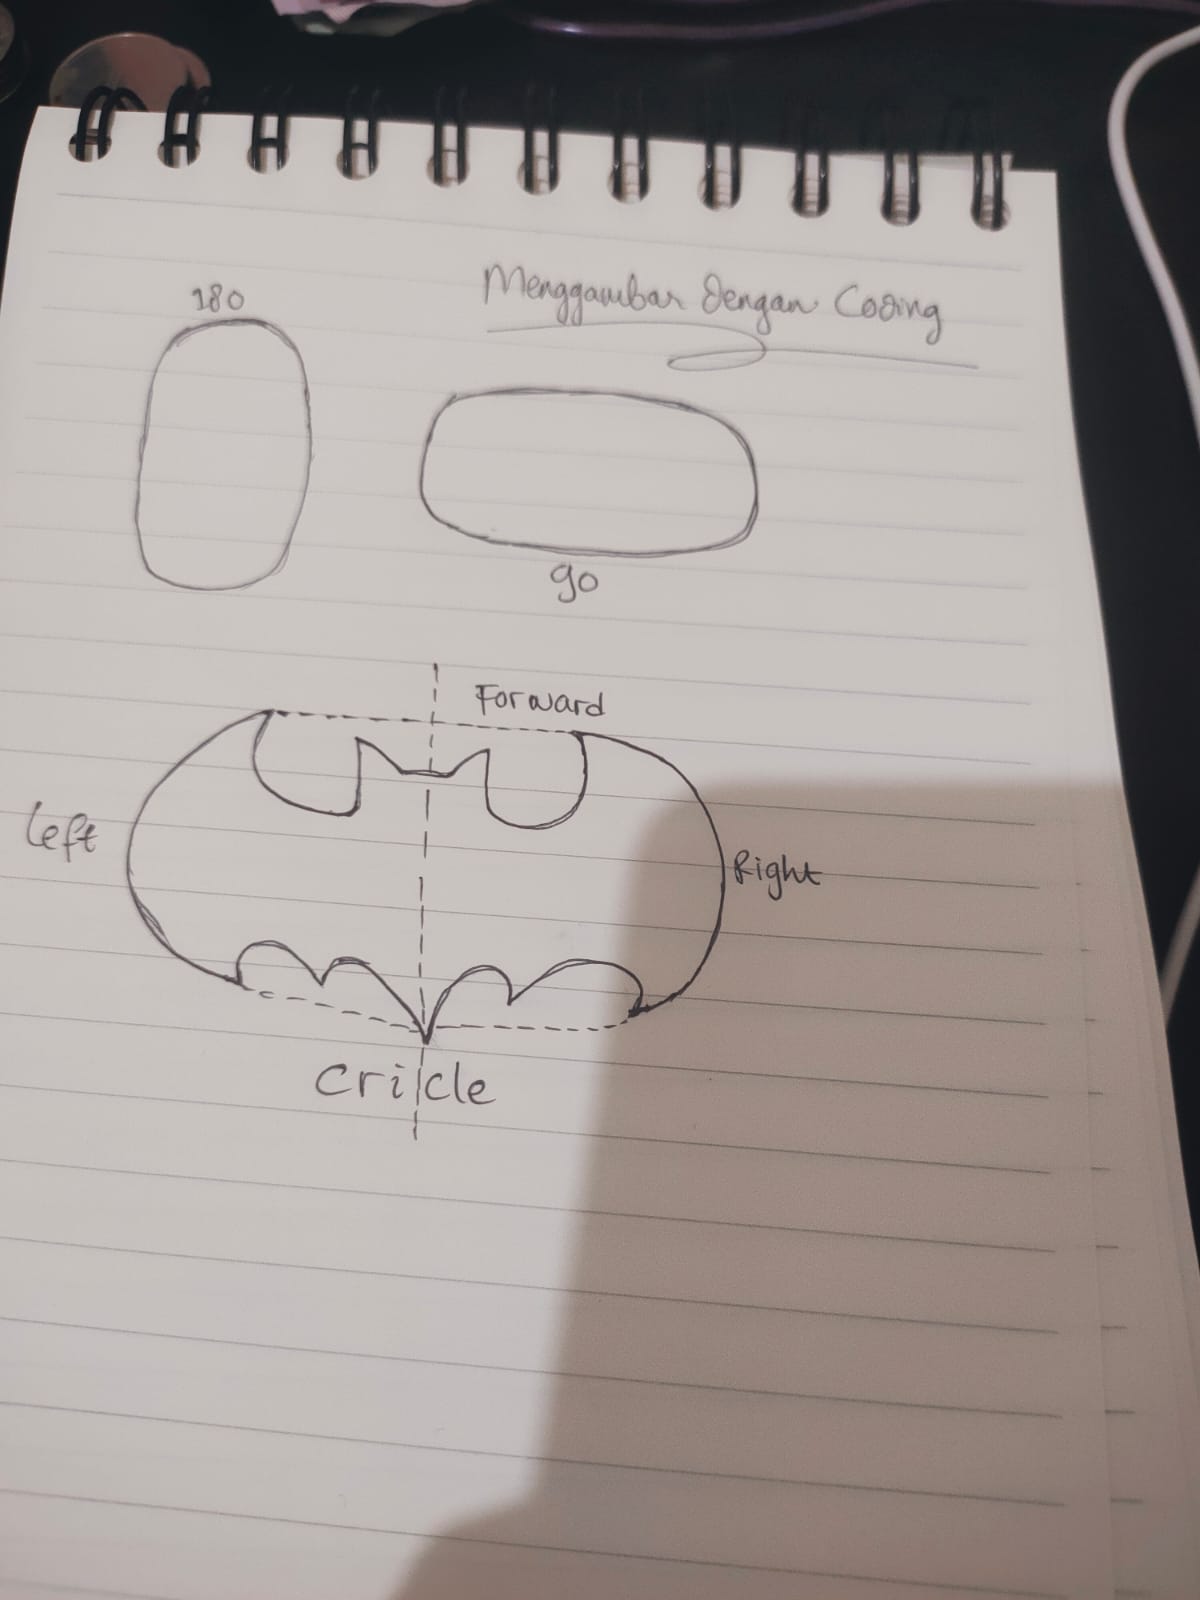 180
Menggambar dengan Coding
90
Forward
Left
Right
Cricle